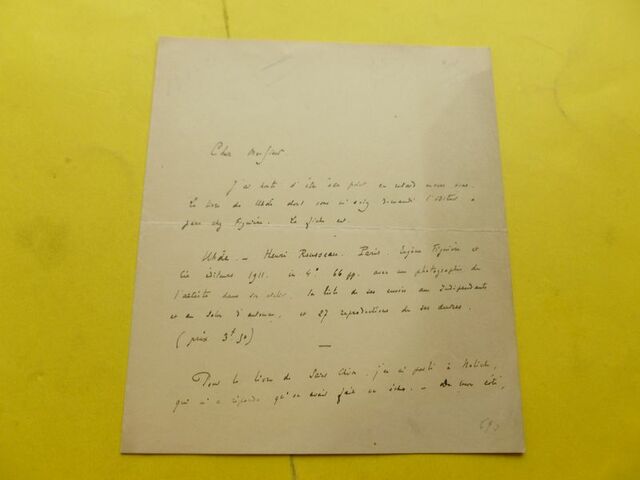 Cher Monsieur
J'ai honte d'être en retard avec vous.
Le livre de Uhde dont vous m'avez demandé l'éditeur a
paru chez Figuière. La fiche est
Uhde. – Henri Rousseau. Paris. Eugène Figuière et
Cie éditeurs 1911. in 4° 66 pp. avec un photographie de
l'artiste dans son atelier. la liste de ses envois aux Indépendants
et au Salon d'automne, et 27 reproductions de ses œuvres.
(prix 3f 50)
—
Pour le livre de j'en ai parlé à
qui m'a répondu qu'on avait fait un écho. – De mon côté,